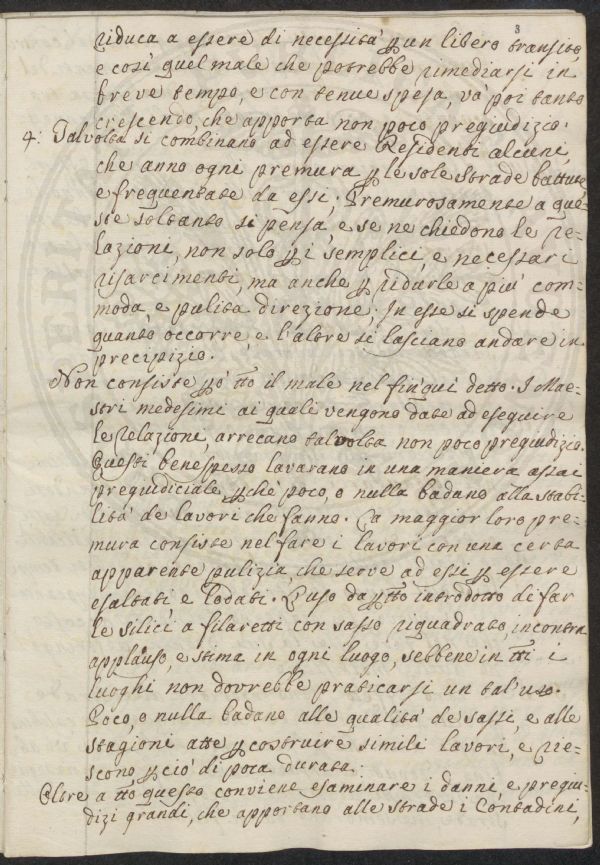 3
riduca a essere di necessità p un libero transito,
e così quel male che potrebbe rimediarsi in
breve tempo, e con tenue spesa, và poi tanto
crescendo, che apporta non poco pregiudizio.
4: Talvolta si combinano ad essere Residenti alcuni,
che anno ogni premura p le sole strade battute,
e frequentate da essi; Premurosamente a que-
ste soltanto si pensa, e se ne chiedono le re-
lazioni, non solo p i semplici, e necessari
risarcimenti, ma anche p ridurle a più com-
moda, e pulita direzione; In esse si spende
quanto occorre, e l'altre si lasciano andare in
precipizio.
Non consiste pò tto il male nel fin quì detto. I Mae-
stri medesimi ai quali vengono date ad eseguire
le Relazioni, arrecano talvolta non poco pregiudizio.
Questi benespesso lavarano in una maniera assai
pregiudiciale, pchè poco, o nulla badano alla stabi-
lità de lavori che fanno. La maggior loro pre-
mura consiste nel fare i lavori con una certa
apparente pulizia, che serve ad essi p essere
esaltati, e lodati. L'uso da p tto introdotto di far
le silici a filaretti con sasso riquadrato, incontra
applauso, e stima in ogni luogo, sebbene in tti i
luoghi non dovrebbe praticarsi un tal'uso.
Poco, o nulla badano alle qualità de sassi, e alle
stagioni atte p costruire simili lavori, e rie-
scono pciò di poca durata.
Oltre a tto questo conviene esaminare i danni, e pregiu-
dizi grandi, che apportano alle strade i Contadini,